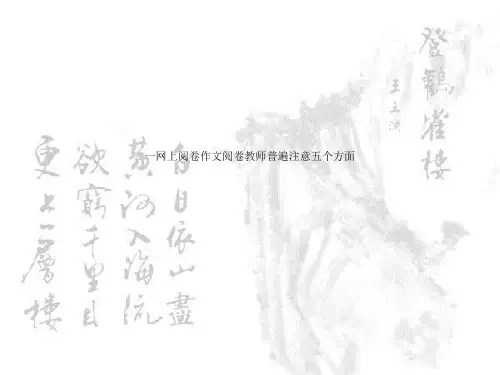 登鸛雀樓
王之渙
一网上阅卷作文阅卷教师普遍注意五个方面
白日依山盡
黄河入海流
欲窮千里目
更上一層樓